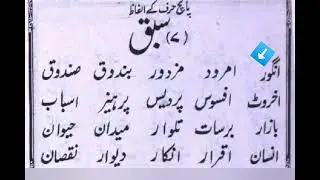 پانچ حرف کے الفاظ
سبق
(۷)
انگور امرود مزدور بندوق صندوق
اخروٹ افسوس پردیس پرہیز اسباب
بازار برسات تلوار میدان حیوان
انسان اقرار انکار دیوار نقصان